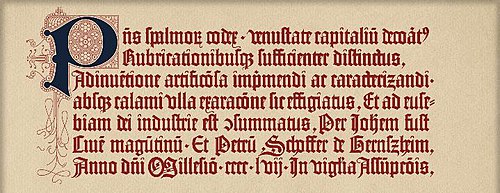 Pn̄s spalmoꝝ codex · venustate capitaliū dcoāt⁹
Rubricationibusqꝫ sufficienter distinctus,
Adinuētione artificōsa imp̄mendi ac caracterizandi·
absqꝫ calami vlla exaracōne sic effigiatus, Et ad euse⸗
biam dei industrie est ꝯsummatus, Per Johem̄ fust
Ciuē magūtinū · Et Petrū Schoffer de Gernszheim,
Anno dn̄i Millesīo · cccc · lvij · In vigl̄ia Assūpcōis,